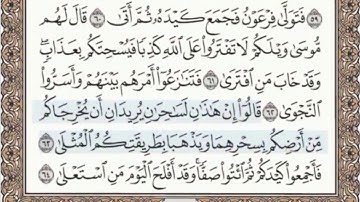 ٥٩ فَتَوَلَّىٰ فِرْعَوْنُ فَجَمَعَ كَيْدَهُۥ ثُمَّ أَتَىٰ ٦٠ قَالَ لَهُم
مُّوسَىٰ وَيْلَكُمْ لَا تَفْتَرُوا۟ عَلَى ٱللَّهِ كَذِبًا فَيُسْحِتَكُم بِعَذَابٍ ۖ
وَقَدْ خَابَ مَنِ ٱفْتَرَىٰ ٦١ فَتَنَـٰزَعُوٓا۟ أَمْرَهُم بَيْنَهُمْ وَأَسَرُّوا۟
ٱلنَّجْوَىٰ ٦٢ قَالُوٓا۟ إِنْ هَـٰذَٰنِ لَسَـٰحِرَٰنِ يُرِيدَانِ أَن يُخْرِجَاكُم
مِّنْ أَرْضِكُم بِسِحْرِهِمَا وَيَذْهَبَا بِطَرِيقَتِكُمُ ٱلْمُثْلَىٰ ٦٣
فَأَجْمِعُوا۟ كَيْدَكُمْ ثُمَّ ٱئْتُوا۟ صَفًّا ۚ وَقَدْ أَفْلَحَ ٱلْيَوْمَ مَنِ ٱسْتَعْلَىٰ ٦٤